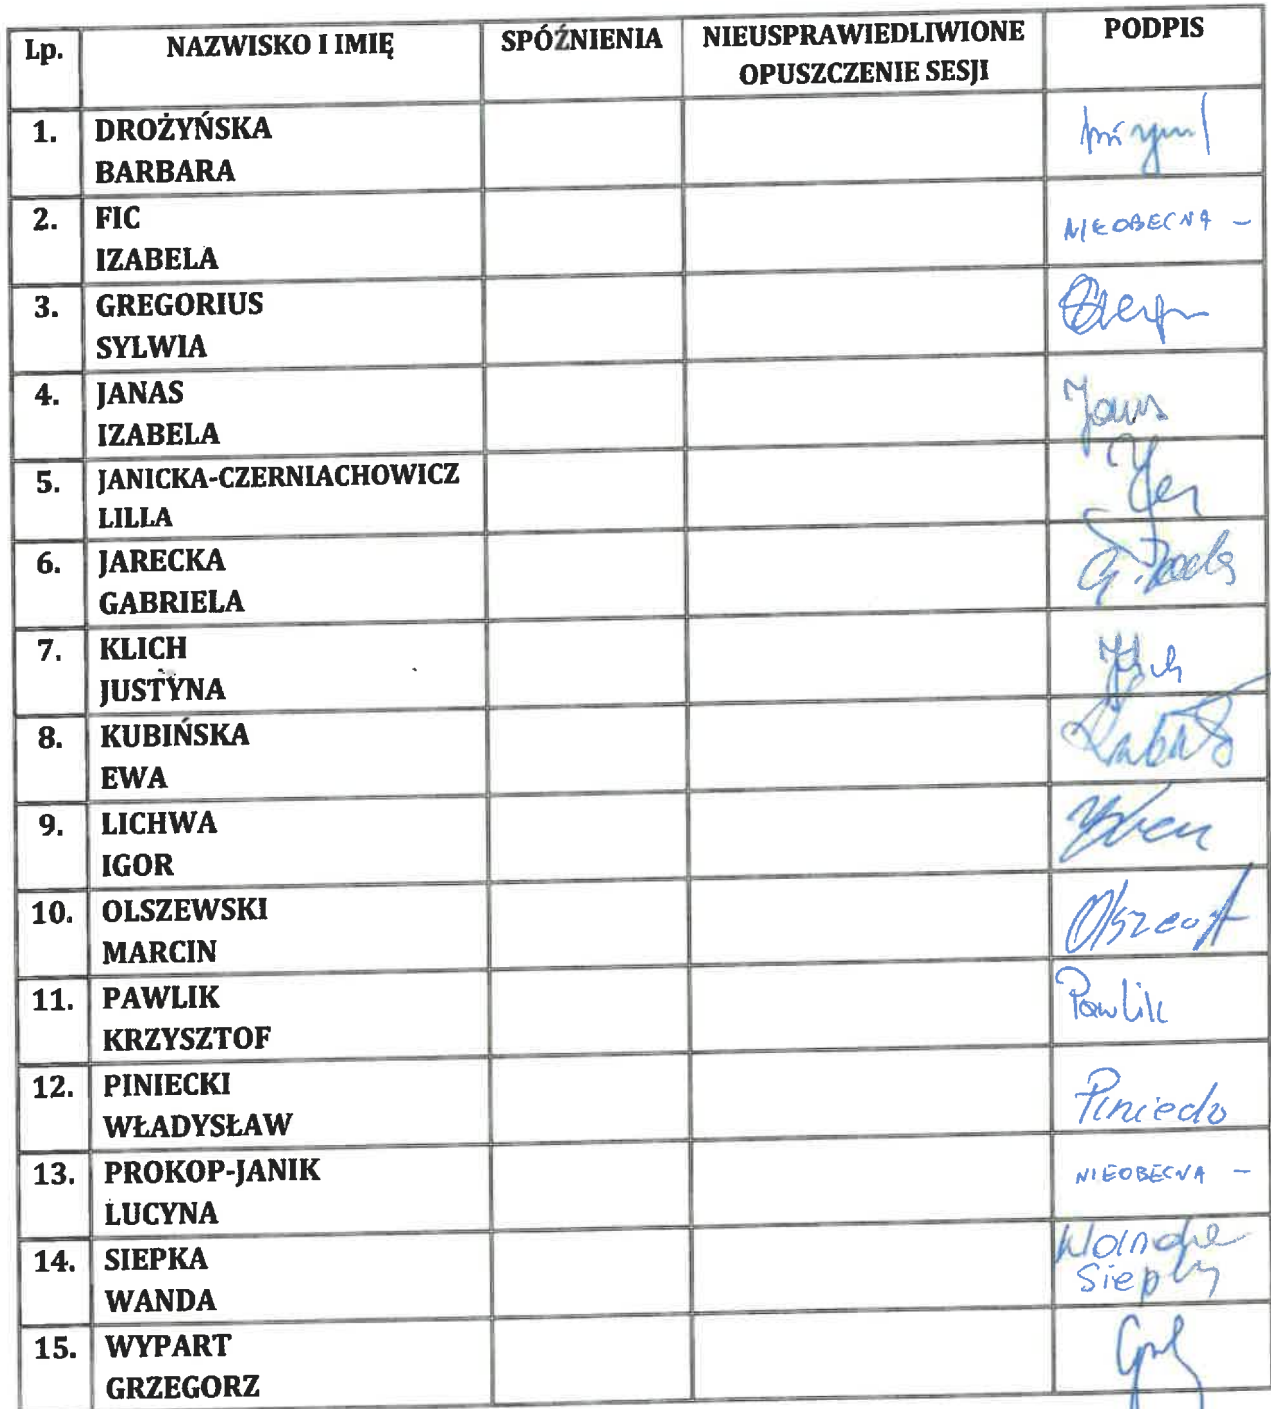 Lp. NAZWISKO I IMIĘ SPÓŹNIENIA NIEUSPRAWIEDLIWIONE OPUSZCZENIE SESJI PODPIS
1. DROŻYŃSKA
BARBARA
2. FIC NIEOBECNA -
IZABELA
3. GREGORIUS
SYLWIA
4. JANAS
IZABELA
5. JANICKA-CZERNIACHOWICZ
LILLA
6. JARECKA
GABRIELA
7. KLICH
JUSTYNA
8. KUBIŃSKA
EWA
9. LICHWA
IGOR
10. OLSZEWSKI
MARCIN
11. PAWLIK Pawlik
KRZYSZTOF
12. PINIECKI
WŁADYSŁAW
13. PROKOP-JANIK NIEOBECNA -
LUCYNA
14. SIEPKA
WANDA
15. WYPART
GRZEGORZ